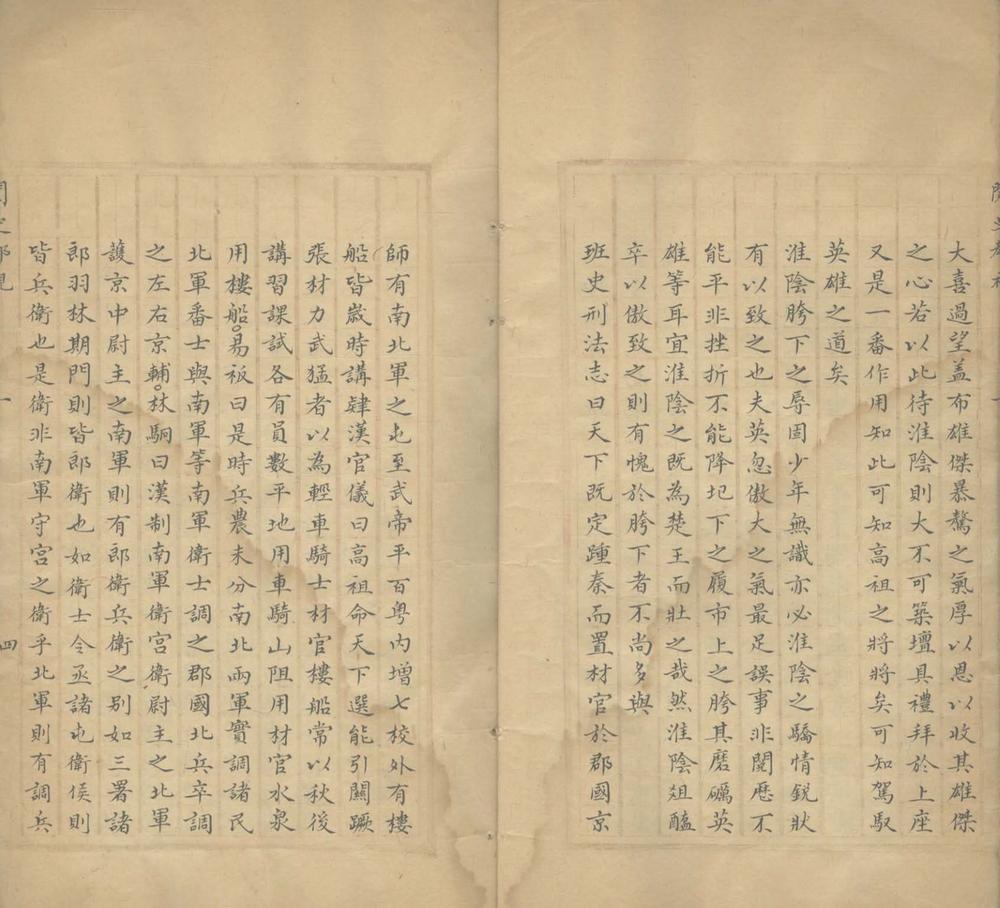 大喜過望盖布雄傑暴驁之氣厚以恩以收其雄傑
之心若以此待淮陰則大不可築壇具禮拜於上座
又是一番作用知此可知高祖之將將矣可知駕馭
英雄之道矣
淮陰胯下之辱固少年無識亦必淮陰之驕情銳狀
有以致之也夫英忽傲大之氣最足誤事非閱歷不
能平非挫折不能降圯下之履市上之胯其磨礪英
雄等耳宜淮陰之既為楚王而壯之哉然淮陰俎醢
卒以傲致之則有愧於胯下者不尚多與
班史刑法志曰天下既定踵秦而置材官於郡國京
師有南北軍之屯至武帝平百粤内增七校外有樓
船皆嵗時講肄漢官儀曰高祖命天下選能引關蹶
張材力武猛者以為輕車騎士材官樓船常以秋後
講習課試各有員數平地用車騎山阻用材官水泉
用樓船○易祓曰是時兵農未分南北兩軍實調諸民
北軍番士與南軍等南軍衛士調之郡國北兵卒調
之左右京輔○林駉曰漢制南軍衛宮衛尉主之北軍
護京中尉主之南軍則有郎衛兵衛之别如三署諸
郎羽林期門則皆郎衛也如衛士令丞諸屯衛侯則
皆兵衛也是衛非南軍守宮之衛乎北軍則有調兵
一
四